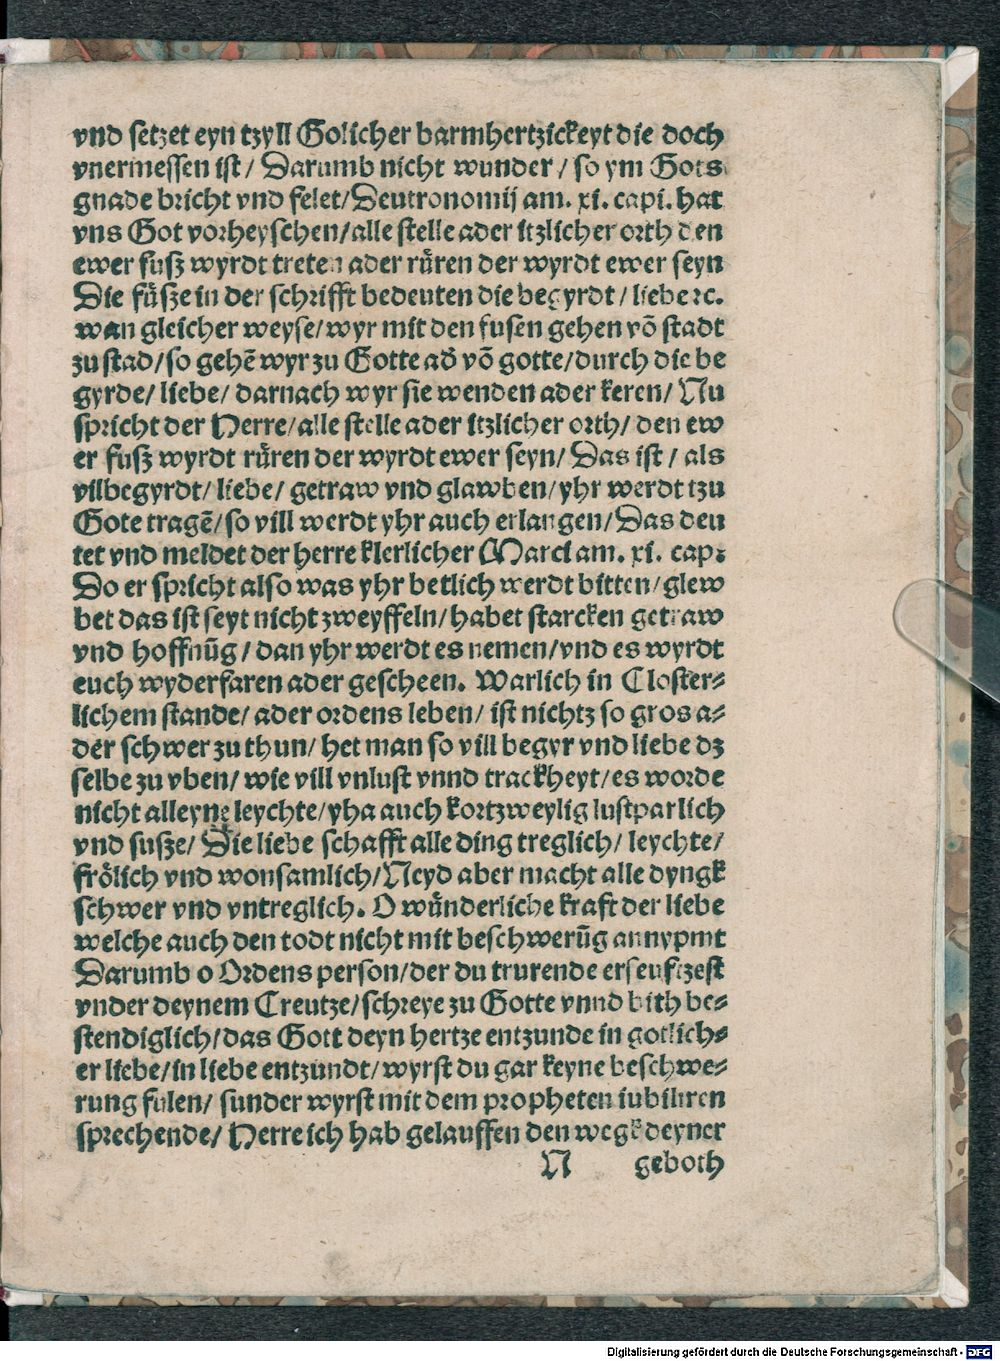 vnd setzet eyn tzyll Gotlicher barmhertzickeyt die doch
vnermessen ist / Darumb nicht wunder / so ym Gots
gnade bricht vnd felet/Deutronomij am. xi. capi. hat
vns Got vorheyschen/alle stelle ader itzlicher orth den
ewer fusz wyrdt treten ader růren der wyrdt ewer seyn
Die fůsze in der schrifft bedeuten die begyrdt / liebe ꝛc.
wan gleicher weyse/wyr mit den fusen gehen vō stadt
zu stad/so gehē wyr zu Gotte ađ vō gotte/durch die be
gyrde/ liebe/ darnach wyr sie wenden ader keren/ Nu
spricht der Herre/alle stelle ader itzlicher orth/ den ew
er fusz wyrdt růren der wyrdt ewer seyn/ Das ist / als
vilbegyrdt/ liebe/ getraw vnd glawben/yhr werdt tzu
Gote tragē/so vill werdt yhr auch erlangen/Das deu
tet vnd meldet der herre klerlicher Marci am. xi. cap:
Do er spricht also was yhr betlich werdt bitten/glew
bet das ist seyt nicht zweyffeln/habet starcken getraw
vnd hoffnūg / dan yhr werdt es nemen/vnd es wyrdt
euch wyderfaren ader gescheen. Warlich in Closter⸗
lichem stande/ ader ordens leben/ ist nichtz so gros a⸗
der schwer zu thun/ het man so vill begyr vnd liebe dz
selbe zu vben/ wie vill vnlust vnnd trackheyt/es worde
nicht alleyne leychte/yha auch kortzweylig lustparlich
vnd susze/ Die liebe schafft alle ding treglich/ leychte/
frôlich vnd wonsamlich/Neyd aber macht alle dyngk
schwer vnd vntreglich. O wůnderliche kraft der liebe
welche auch den todt nicht mit beschwerūg annypmt
Darumb o Ordens person/der du trurende erseufczest
vnder deynem Creutze/schreye zu Gotte vnnd bith be⸗
stendiglich/das Gott deyn hertze entzunde in gotlich⸗
er liebe/in liebe entzundt/wyrst du gar keyne beschwe⸗
rung fulen/ sunder wyrst mit dem propheten iubiliren
sprechende/ Herre ich hab gelauffen den wegk deyner
N geboth
Digitalisierung gefördert durch die Deutsche Forschungsgemeinschaft - DFG